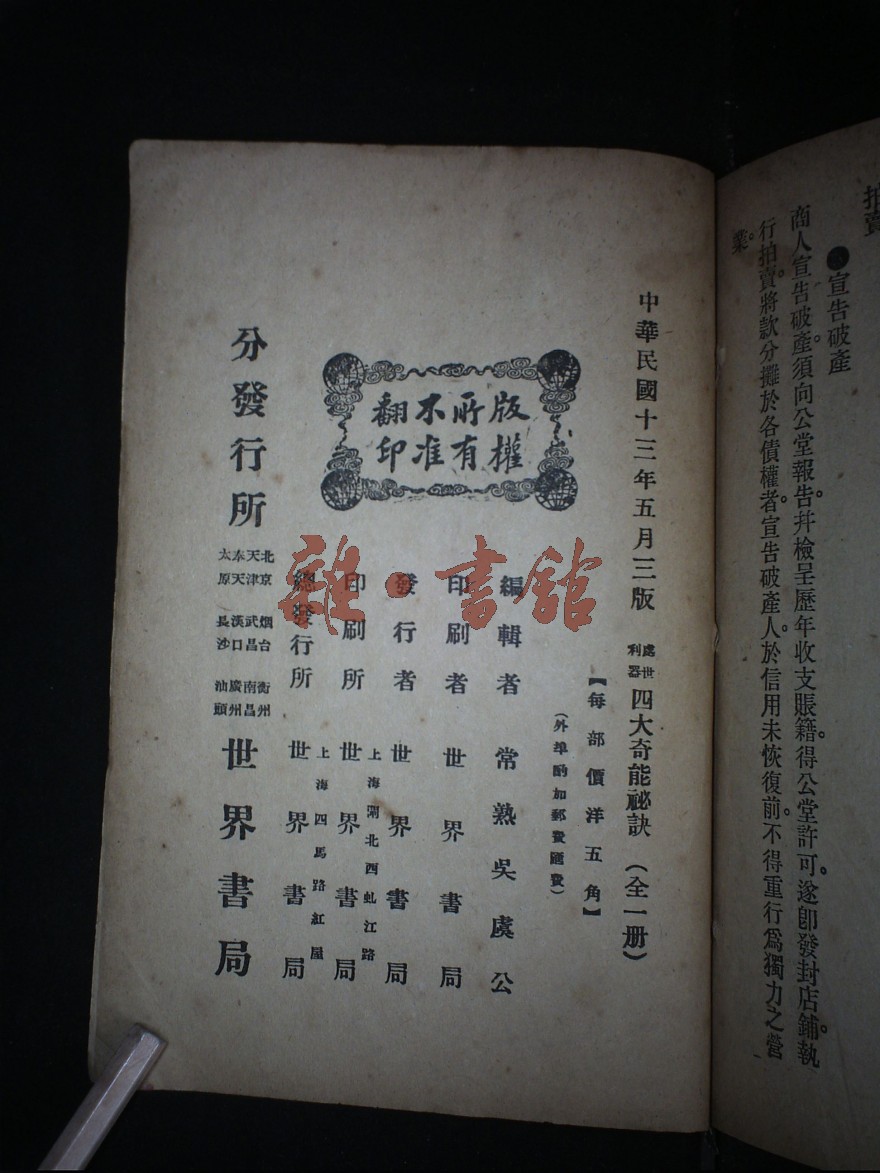 拍賣
●宣告破產
商人宣告破產。須向公堂報告。幷檢呈歷年收支賬籍。得公堂許可。遂卽發封店鋪。執
行拍賣。將款分攤於各債權者。宣告破產人。於信用未恢復前。不得重行爲獨力之營
業。
中華民國十三年五月三版
處世利器 四大奇能祕訣 (全一册)
【每部價洋五角】
(外埠酌加郵費匯費)
版權所有
不准翻印
編輯者 常熟吳虞公
印刷者 世界書局
發行者 世界書局
印刷所 上海閘北西虬江路 世界書局
總發行所 上海四馬路紅屋 世界書局
分發行所 北京 天津 奉天 太原 烟台 武昌 漢口 長沙 衡州 南昌 廣州 汕頭 世界書局
雜·書館